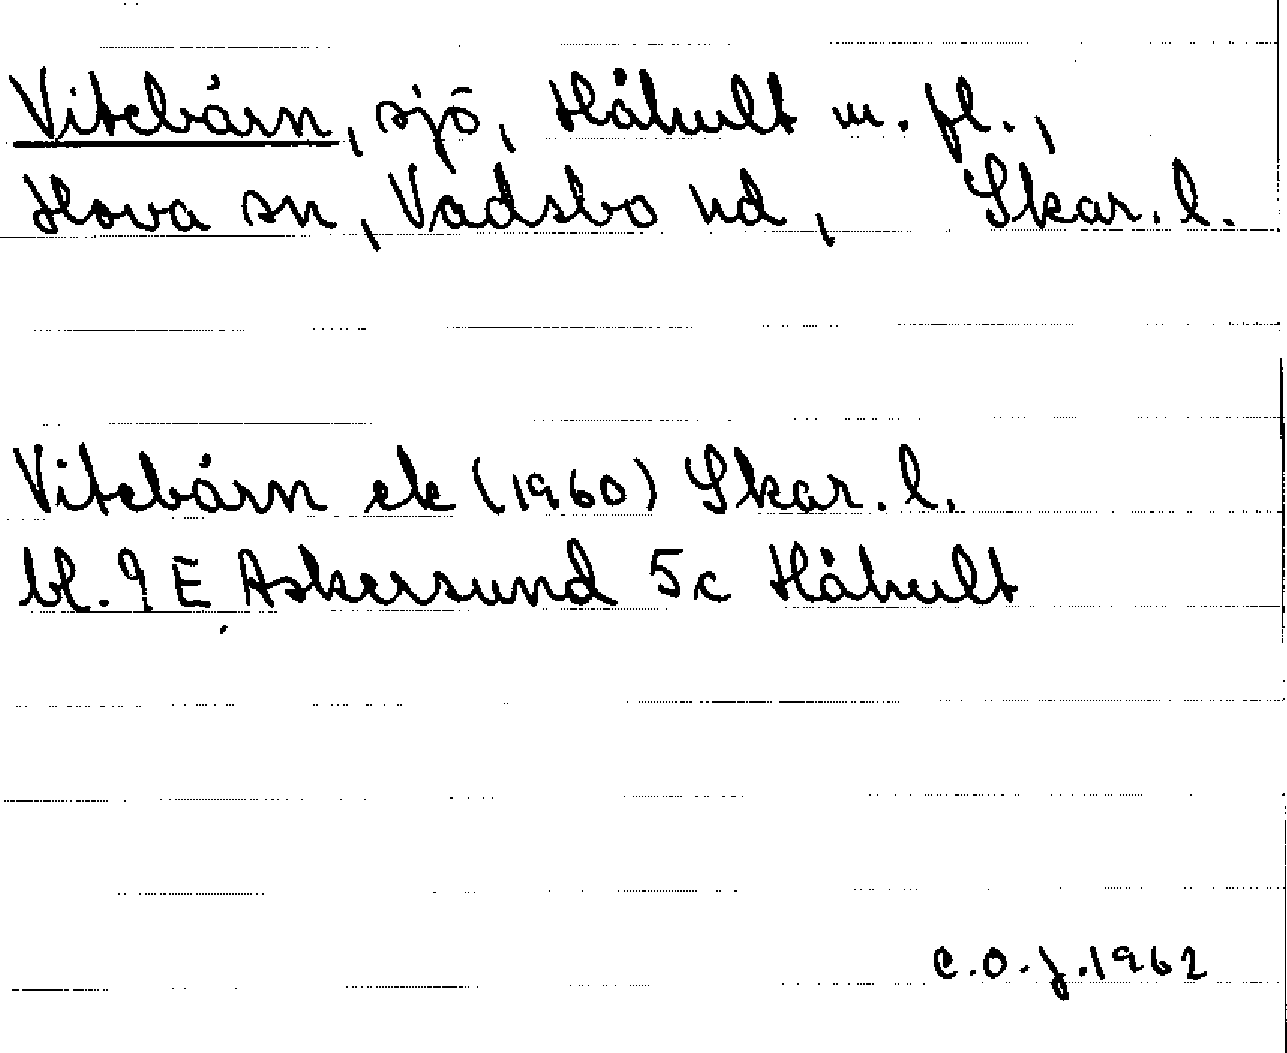 Vitebårn, sjö, Håhult m. fl.,
Hova sn, Vadsbo hd, Skar. l.
Vitebårn ek (1960) Skar. l.
bl. 9 E Askersund 5c Håhult
C.O.J. 1962